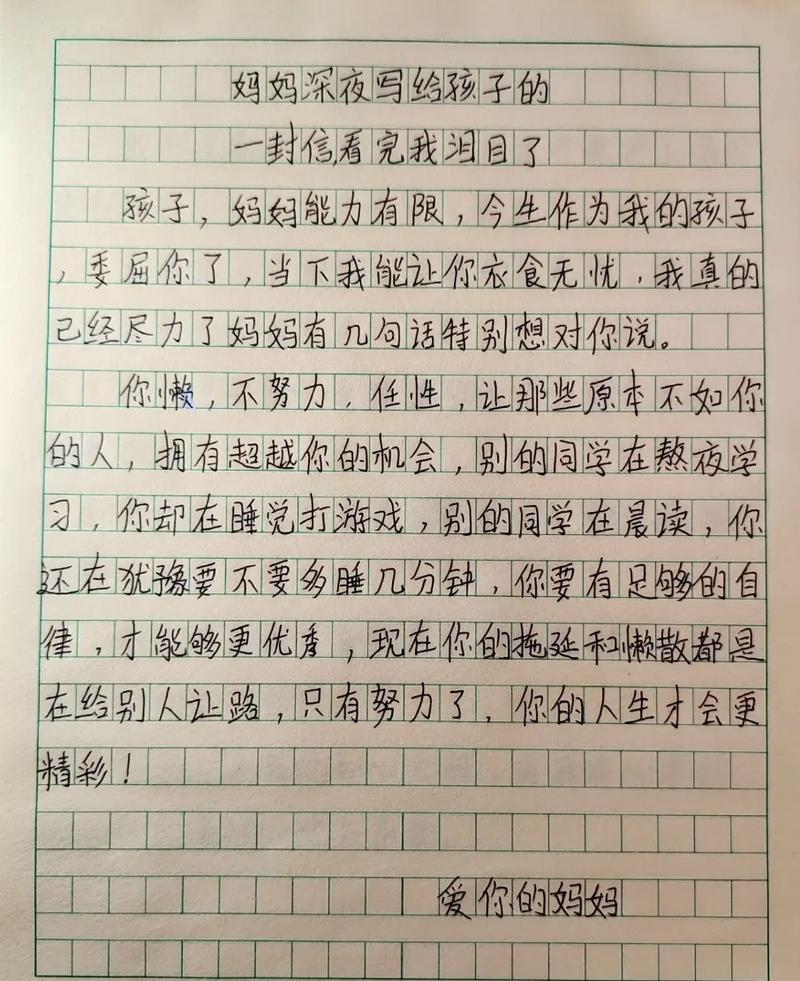 妈妈深夜写给孩子的
一封信,看完我泪目了
孩子，妈妈能力有限，今生作为我的孩子
，委屈你了，当下我能让你衣食无忧，我真的
已经尽力了妈妈有几句话特别想对你说。
你懒，不努力，任性，让那些原本不如你
的人，拥有超越你的机会，别的同学在熬夜学
习，你却在睡觉打游戏，别的同学在晨读，你
还在犹豫要不要多睡几分钟，你要有足够的自
律，才能够更优秀，现在你的拖延和懒散都是
在给别人让路，只有努力了，你的人生才会更
精彩！
爱你的妈妈